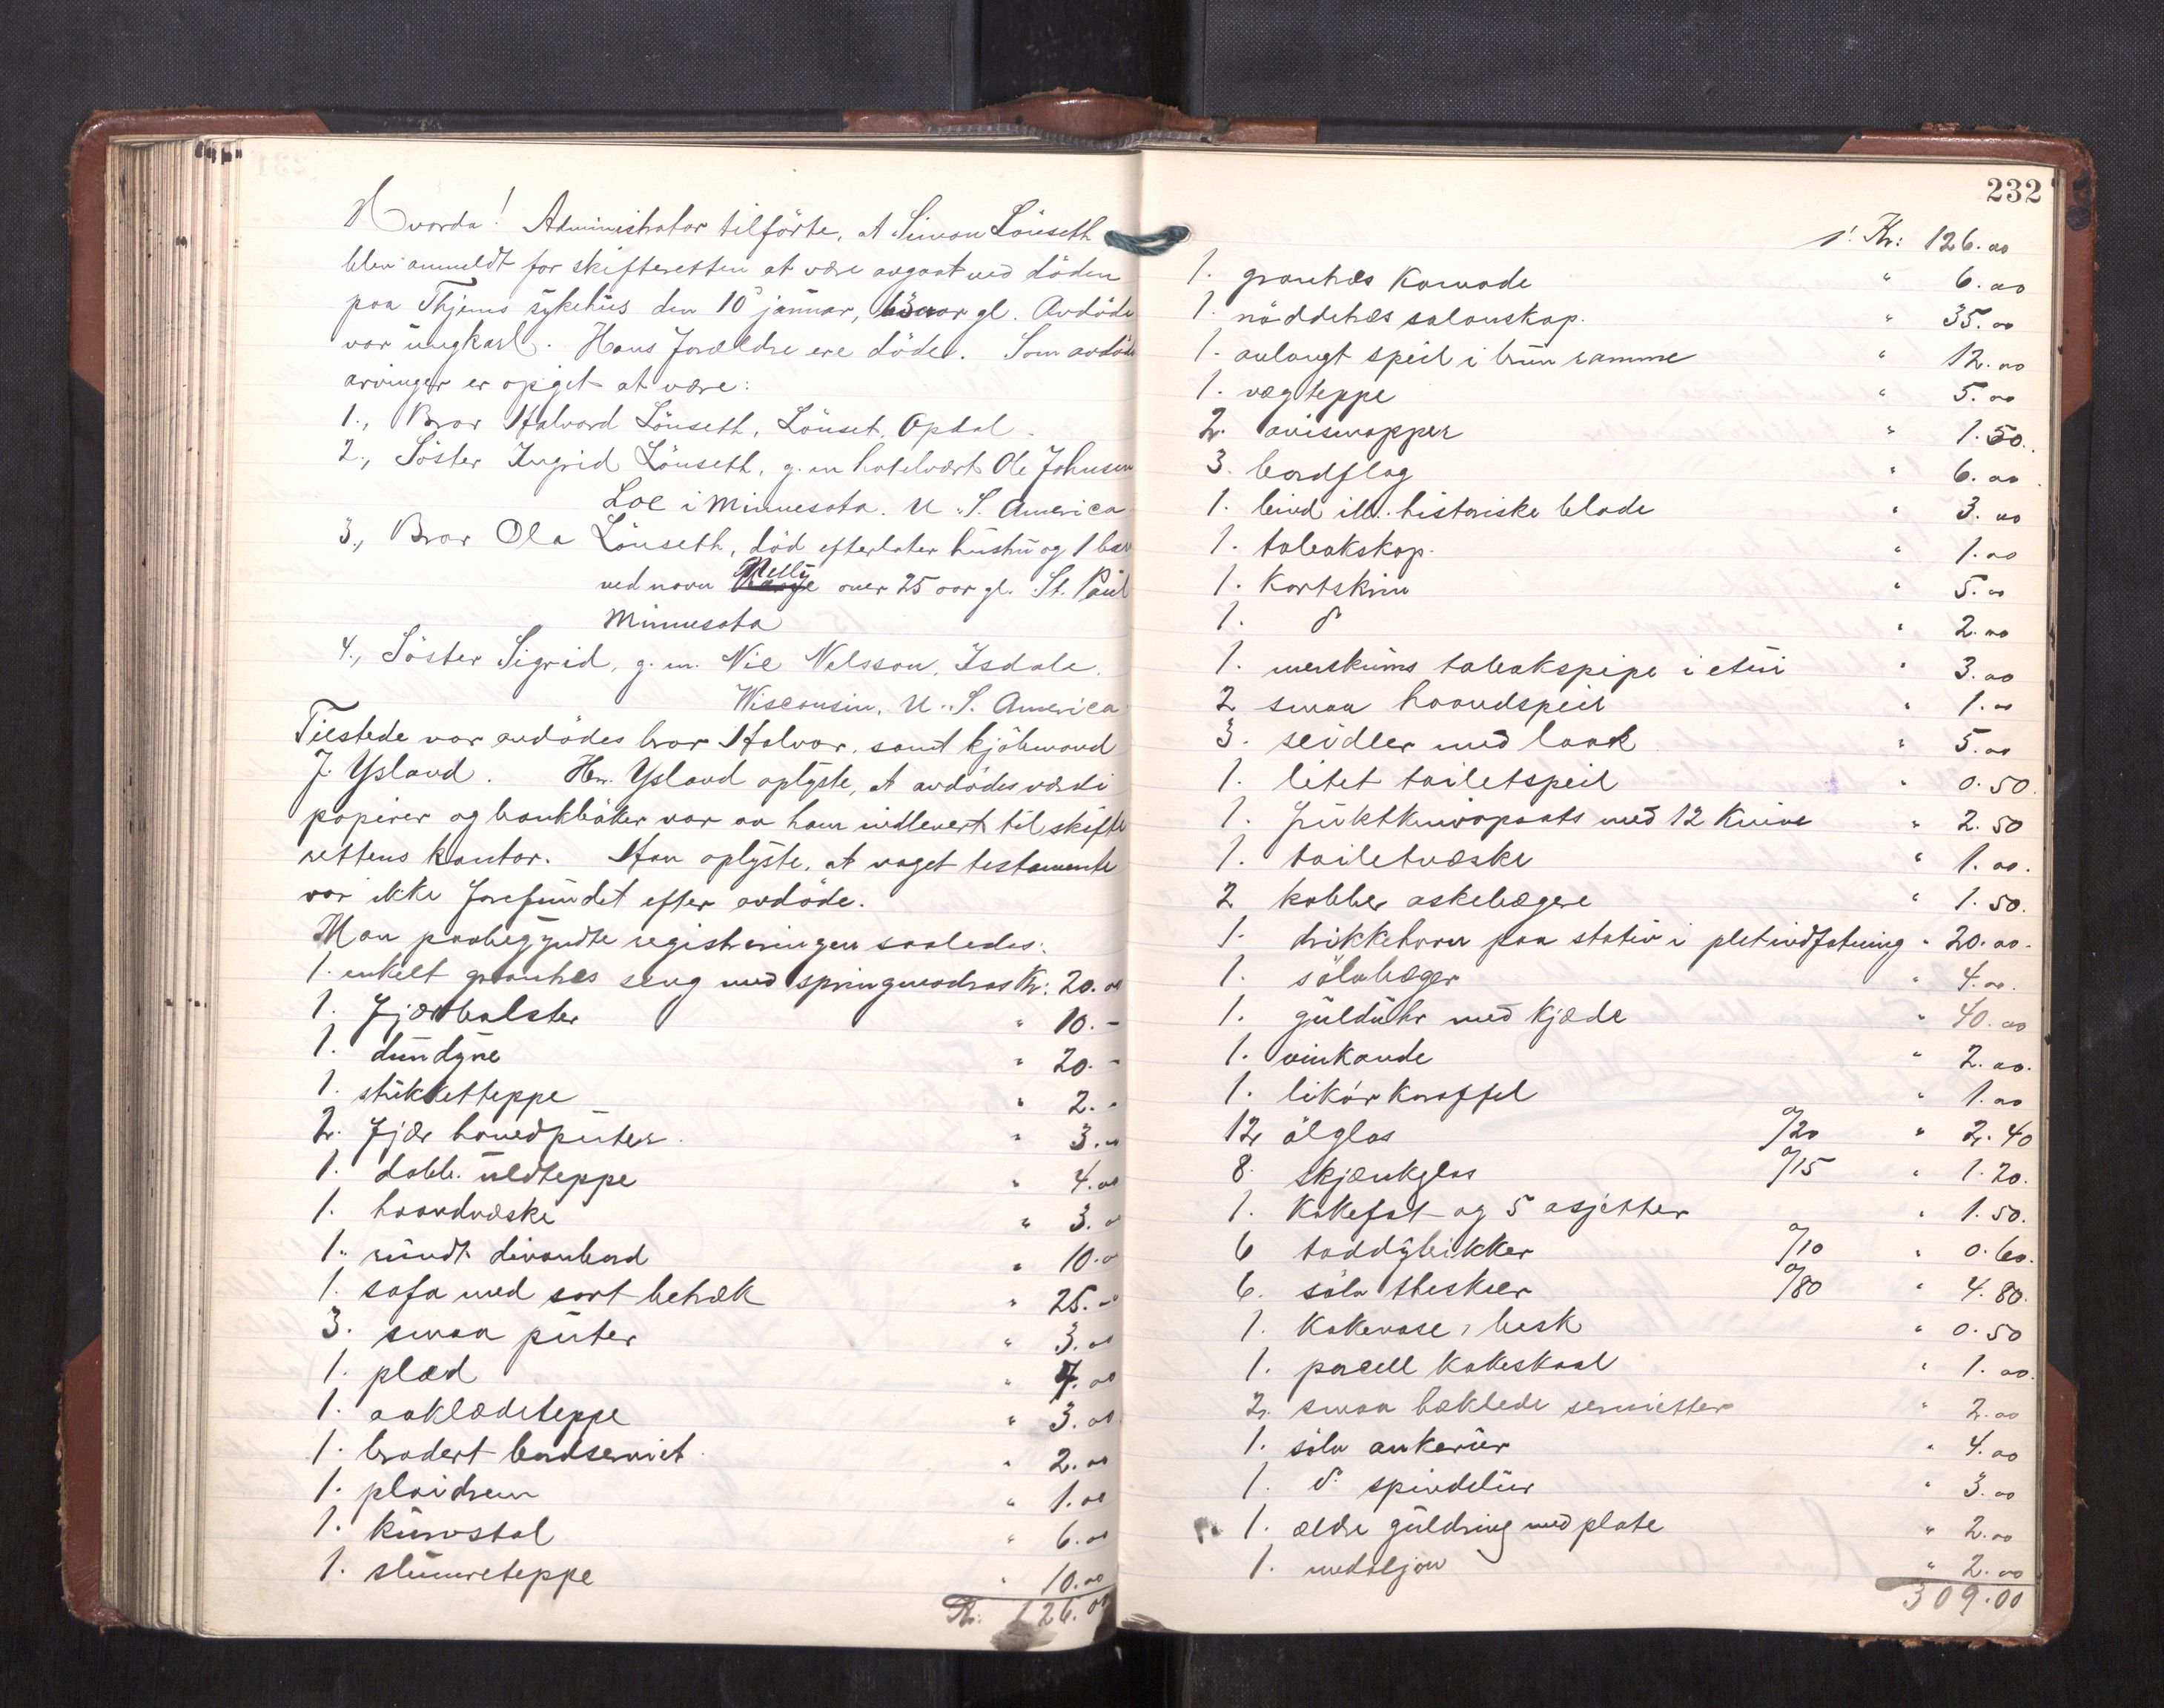 Hvorda! Administrator tilförte, at Simon Lönseth
blev anmeldt for skifteretten at være avgaat ved döden
paa Thjems sykehus den 10 januar, 63 aar gl. Avdöde
var ungkarl. Hans Forældre ere döde. Som avdödes
arvinger er opgit at være:
1., Bror Halvord Lönseth, Lönset, Opdal.
2., Söster Ingrid Lönseth, g. m hotelvært Ole Johnsen
Loe i Minnesota. U. S. America
3., Bror Ola Lönseth, död efterlater hustru og 1 barn
ved navn Nelly over 25 aar gl. St. Paul
Minnesota
4., Söster Sigrid, g. m. Nie Nelsson, Isdale,
Wisconsin, U. S. America
Tilstede var avdödes bror Halvor, samt kjöbmand
J. Ysland. Hr. Ysland oplyste, at avdödes værdi
papirer og bankböker var av ham indlevert til skifte
rettens kontor. Han oplyste, at noget testamente
var ikke forefundet efter avdöde.
Man paabegyndte registreringen saaledes:
1. enkelt grantræs seng med springmadras Kr: 20.00
1. Fjærbolster " 10.-
1. dundyne " 20.-
1. stikketteppe " 2.-
2. Fjær hovedputer " 3.00
1. dobb. uldteppe " 4.00
1. haandvæske " 3.00
1. rundt divanbord " 10.00
1. sofa med sort betræk " 25.00
3. smaa puter " 3.00
1. plæd " 4.00
1. aaklædeteppe " 3.00
1. brodert bordserviet " 2.00
1. plaidrem " 1.00
1. kurvstol " 6.00
1. slumreteppe " 10.00
Kr: 126.00
232
Kr: 126.00
1. grantræs Komode " 6.00
1. nöddetræs salonskap. " 35.00
1. avlangt speil i brun ramme " 12.00
1. vægteppe " 5.00
2. avismapper " 1.50.
3. bordflag " 6.00
1. bind ill. historiske blade " 3.00
1. tobakskap. " 1.00
1. Kortskrin " 5.00
1. d " 2.00
1. merskums tobakspipe i etui " 3.00
2 smaa haandspeil " 1.00
3. seidler med laak " 5.00
1. litet toiletspeil " 0.50.
1. Fruktknivopsats med 12 Knive " 2.50
1. toiletvæske " 1.00.
2 kobber askebægere " 1.50.
1. drikkehorn paa stativ i pletindfatning " 20.00.
1. sölvbæger " 4.00.
1. gulduhr med Kjæde " 40.00
1. vinkande " 2.00.
1. likörkaraffel " 1.00
12 ölglas a/20 " 2.40
8. skjænkglas a/15 " 1.20.
1. Kakefat og 5 asjetter " 1.50.
6 toddybikker a/10 " 0.60.
6. sölv theskeer a/80 " 4.80.
1. Kakevase, besk " 0.50
1. porcell Kakeskaal " 1.00.
2. smaa hæklede servietter " 2.00
1. sölv ankerur " 4.00
1. d. spindelur " 3.00
1. ældre guldring med plate " 2.00
1. medaljon " 2.00
309.00